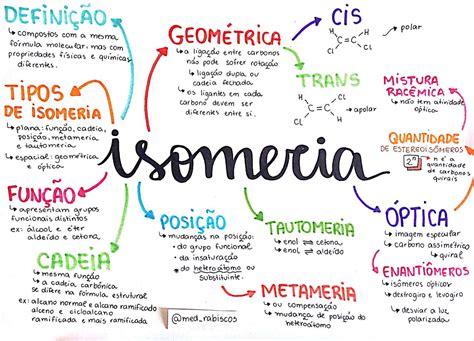 DEFINIÇÃO
↳ compostos com a mesma
fórmula molecular, mas com
propriedades físicas e químicas
diferentes.
TIPOS
DE ISOMERIA
↳ plana: função, cadeia,
posição, metameria
e tautomeria
↳ espacial: geométrica
e óptica
FUNÇÃO
↳ apresentam grupos
funcionais distintos
ex: álcool e éter
aldeído e cetona
CADEIA
↳ mesma função
↳ a cadeia carbônica
se difere na fórmula estrutural
ex: alcano normal e alcano ramificado
alceno e cicloalcano
mais ramificado e menos ramificado
GEOMÉTRICA
↳ a ligação entre carbonos
não pode sofrer rotação
↳ ligação dupla ou
cadeia fechada
↳ os ligantes em cada
carbono devem ser
diferentes entre si.
CIS
Cl Cl
C=C
→ polar
TRANS
Cl
C=C
Cl
→ apolar
MISTURA
RACÊMICA
↳ não tem atividade
óptica
QUANTIDADE
DE ESTEREOISÔMEROS
2ⁿ
n é a
quantidade
de carbonos
quirais
isomeria
POSIÇÃO
↳ mudanças na posição:
• do grupo funcional
• da insaturação
• do heteroátomo ou
substituinte
TAUTOMERIA
↳ enol ⇌ cetona
↳ enol ⇌ aldeído
METAMERIA
↳ ou compensação
↳ mudança de posição do
heteroátomo
ÓPTICA
↳ imagem especular
↳ carbono assimétrico
quiral
ENANTIÔMEROS
↳ isômeros ópticos
↳ dextrogiro e levogiro
↳ desviam a luz
polarizada
@med_rabiscos